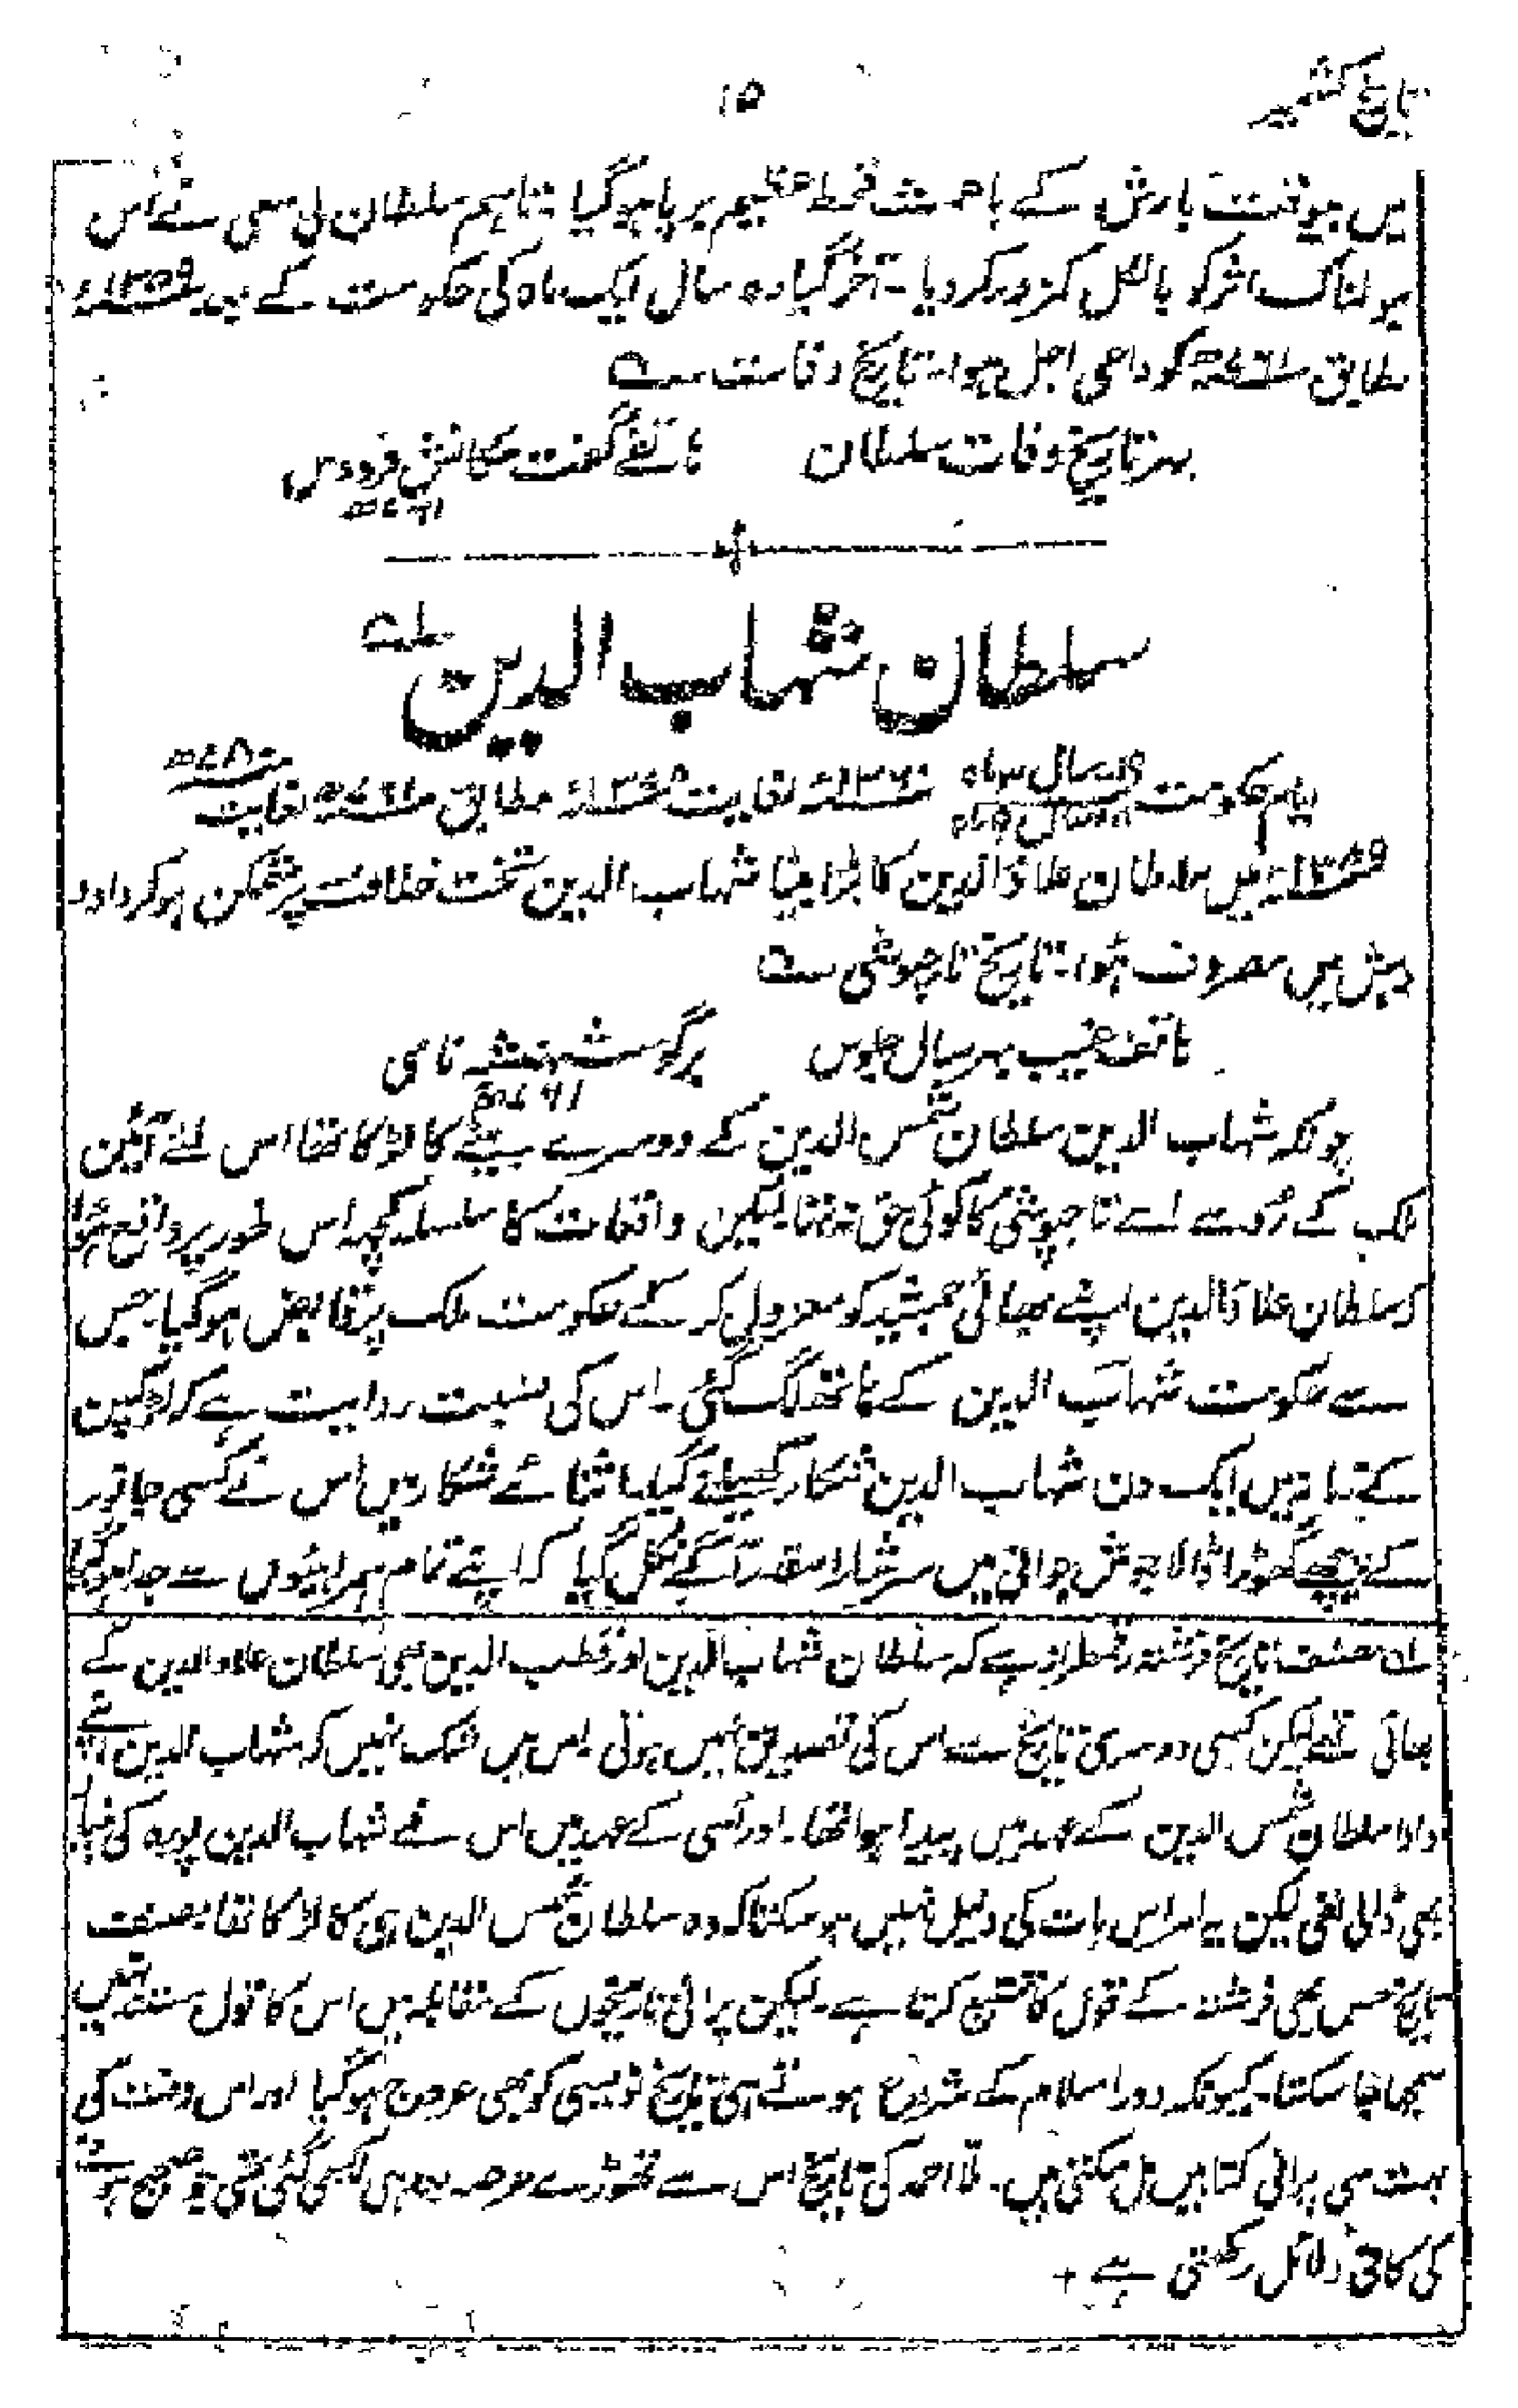 تاریخ کشمیر
۱۵
میں بیوقت بارش کے باعث قحط عظیم برپا ہوگیا۔ تاہم سلطان کی سعی نے اس
ہولناک اثر کو بالکل کمزور کر دیا۔ آخر گیارہ سال ایک ماہ کی حکومت کے بعد ۱۳۵۹ء
مطابق ۷۶۱ھ کو داعی اجل ہوا۔ تاریخ وفات ہے
بہر تاریخ وفات سلطان ہاتفے گفت مکانش فردوس
۷۶۱ھ
سلطان شہاب الدین ؎۱
ایام حکومت ۱۹ سال ۳ ماہ ۱۳۶۰ء لغایت ۱۳۷۸ء مطابق ۷۶۱ھ لغایت ۷۸۰ھ
۱۳۵۹ء میں سلطان علاؤالدین کا بڑا بیٹا شہاب الدین تخت خلافت پر متمکن ہو کر داد و
دہش میں مصروف ہوا۔ تاریخ تاجپوشی ہے
ہاتف غیب بہر سال جلوس برگو شہنشہ نامی
۷۶۱ھ
چونکہ شہاب الدین سلطان شمس الدین کے دوسرے بیٹے کا لڑکا تھا اس لئے آئین
ملک کے رو سے اسے تاجپوشی کا کوئی حق نہ تھا لیکن واقعات کا سلسلہ کچھ اس طور پر واقع ہوا
کہ سلطان علاؤالدین اپنے بھائی جمشید کو معزول کر کے حکومت ملک پر قابض ہو گیا۔ جس
سے حکومت شہاب الدین کے ہاتھ لگ گئی۔ اس کی نسبت روایت ہے کہ لڑکپن
کے زمانہ میں ایک دن شہاب الدین شکار کھیلنے گیا۔ اثنائے شکار میں اس نے کسی جانور
کے پیچھے گھوڑا ڈالا جوش جوانی میں سرشار اسقدر آگے نکل گیا کہ اپنے تمام ہمراہیوں سے جدا ہوگیا
؎۱ مصنف تاریخ فرشتہ رقمطراز ہے کہ سلطان شہاب الدین اور قطب الدین بھی سلطان علاؤالدین کے
بھائی تھے لیکن کسی دوسری تاریخ سے اس کی تصدیق نہیں ہوتی۔ اس میں شک نہیں کہ شہاب الدین اپنے
دادا سلطان شمس الدین کے عہد میں پیدا ہوا تھا۔ اور اسی کے عہد میں اس نے شہاب الدین پورہ کی بنیاد
بھی ڈالی تھی لیکن یہ امر اس بات کی دلیل نہیں ہو سکتا کہ وہ سلطان شمس الدین ہی کا لڑکا تھا۔ مصنف
تاریخ حسن بھی فرشتہ کے قول کا تتبع کرتا ہے۔ لیکن پرانی تاریخوں کے مقابلہ میں اس کا قول مستند نہیں
سمجھا جا سکتا۔ کیونکہ دور اسلام کے شروع ہوتے ہی تاریخ نویسی کو بھی عروج ہو گیا اور اس وقت کی
بہت سی پرانی کتابیں مل سکتی ہیں۔ ملا احمد کی تاریخ اس سے تھوڑے عرصہ بعد ہی لکھی گئی تھی جو صحیح ہونے
کی کافی دلائل رکھتی ہے +